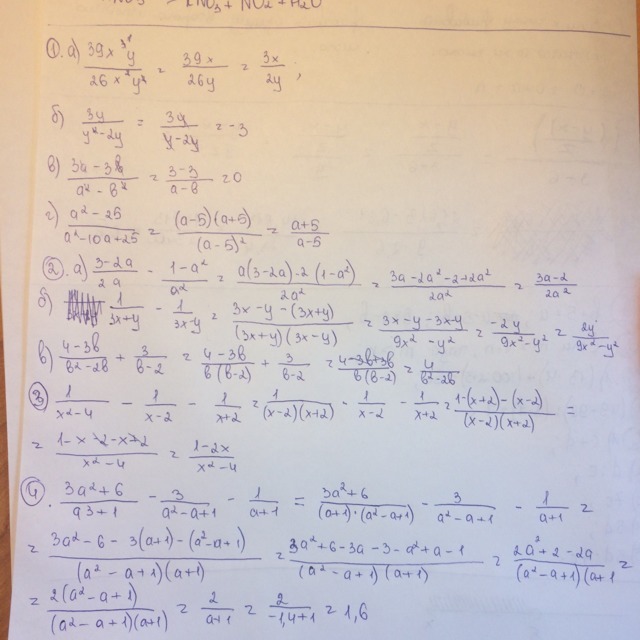 → KNO₃ + NO₂ + H₂O
①. а) 39x³y / 26x²y² = 39x / 26y = 3x / 2y ;
б) 3y / y²-2y = 3y / y-2y = -3
в) 3a-3b / a²-b² = 3-3 / a-b = 0
г) a²-25 / a²-10a+25 = (a-5)(a+5) / (a-5)² = a+5 / a-5
② . а) 3-2a / 2a - 1-a² / a² = a(3-2a)-2(1-a²) / 2a² = 3a-2a²-2+2a² / 2a² = 3a-2 / 2a²
б) 1 / 3x+y - 1 / 3x-y = 3x-y-(3x+y) / (3x+y)(3x-y) = 3x-y-3x-y / 9x²-y² = -2y / 9x²-y² = 2y / 9x²-y²
в) 4-3b / b²-2b + 3 / b-2 = 4-3b / b(b-2) + 3 / b-2 = 4-3b+3b / b(b-2) = 4 / b²-2b
③ 1 / x²-4 - 1 / x-2 - 1 / x+2 = 1 / (x-2)(x+2) - 1 / x-2 - 1 / x+2 = 1-(x+2)-(x-2) / (x-2)(x+2) =
= 1-x-2-x+2 / x²-4 = 1-2x / x²-4
④. 3a²+6 / a3+1 - 3 / a²-a+1 - 1 / a+1 = 3a²+6 / (a+1)·(a²-a+1) - 3 / a²-a+1 - 1 / a+1 =
= 3a²-6-3(a+1)-(a²-a+1) / (a²-a+1)(a+1) = 3a²+6-3a-3-a²+a-1 / (a²-a+1)(a+1) = 2a²+2-2a / (a²-a+1)(a+1 =
= 2(a²-a+1) / (a²-a+1)(a+1) = 2 / a+1 = 2 / -1,4+1 = 1,6